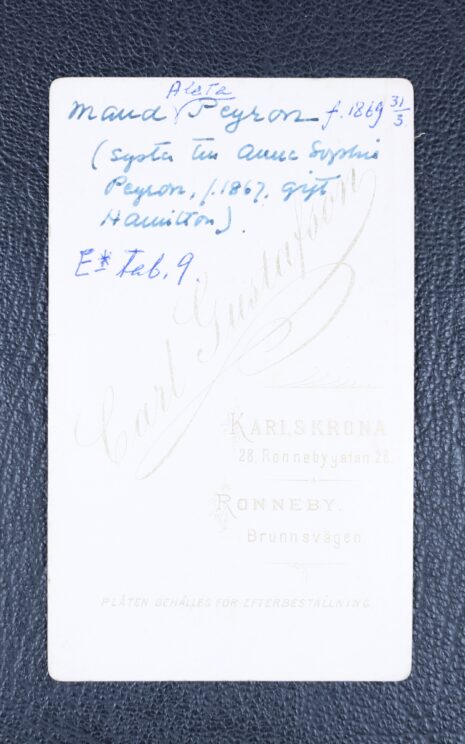 Maud Peyron f. 1869 31/3
(syster till Anna Sophie
Peyron, f. 1867, gift
Hamilton).
E* Tab. 9.
Carl Gustafson
KARLSKRONA
28, Ronnebygatan 28.
RONNEBY.
Brunnsvägen
PLÅTEN BEHÅLLES FÖR EFTERBESTÄLLNING.